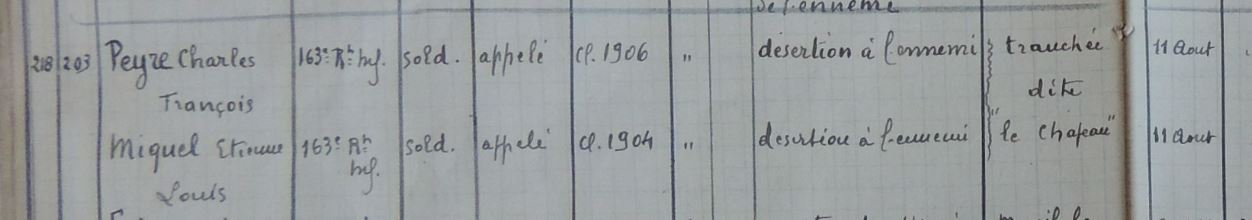 de l'ennemi
218 203 Peyre Charles 163e Rt Inf. sold. appelé cl. 1906 " désertion à l'ennemi tranchée 11 Aout
François dite
Miquel Etienne 163e Rt sold. appelé cl. 1904 " desertion à l'ennemi "le Chapeau" 11 Aout
Inf.
Louis